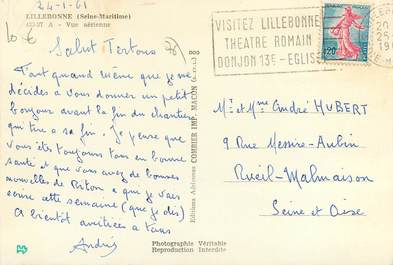 24-1-61
LILLEBONNE (Seine-Maritime)
A - Vue aérienne
Salut Tertous
Tout quand même que je me
décides à vous donner un petit
bonjour avant la fin du chantier
qui tire a sa fin. Je pense que
vous êtes toujours tous en bonne
santé et que vous avez de bonnes
nouvelles de Riton a que je vais
écrire cette semaine (que je dis)
A bientôt amitiées a tous
André
Editions Aériennes COMBIER IMP. MACON
Photographie Véritable
Reproduction Interdite
VISITEZ LILLEBONNE
THEATRE ROMAIN
DONJON 13e - EGLISE
0,20
Mr et Mme André HUBERT
9 Rue Messire-Aubin
Rueil-Malmaison
Seine et Oise